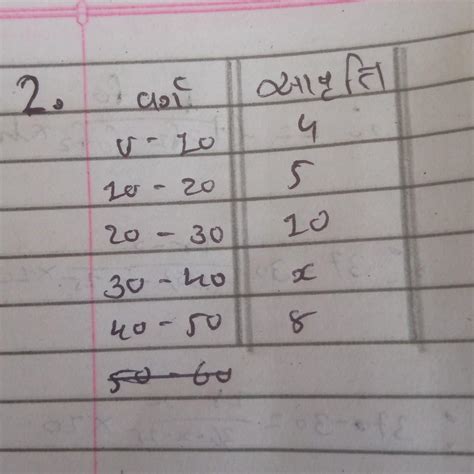 2. વર્ગ આવૃત્તિ
0 - 10 4
10 - 20 5
20 - 30 10
30 - 40 x
40 - 50 8
50 - 60